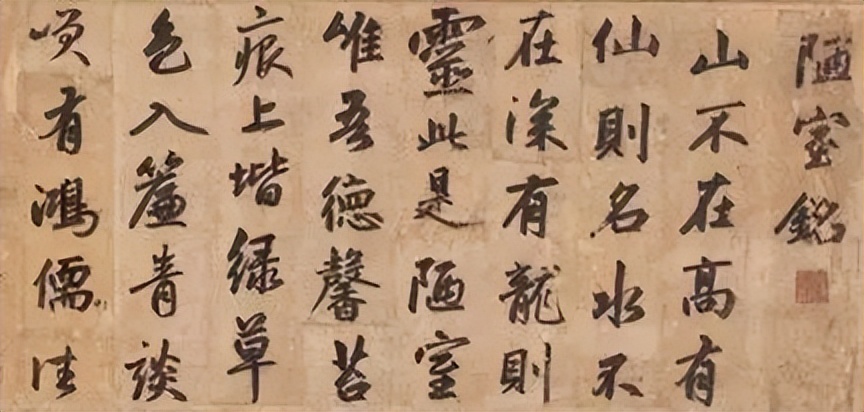 陋室銘
山不在高有
仙則名水不
在深有龍則
靈此是陋室
惟吾德馨苔
痕上堦緑草
色入簾青談
咲有鴻儒往